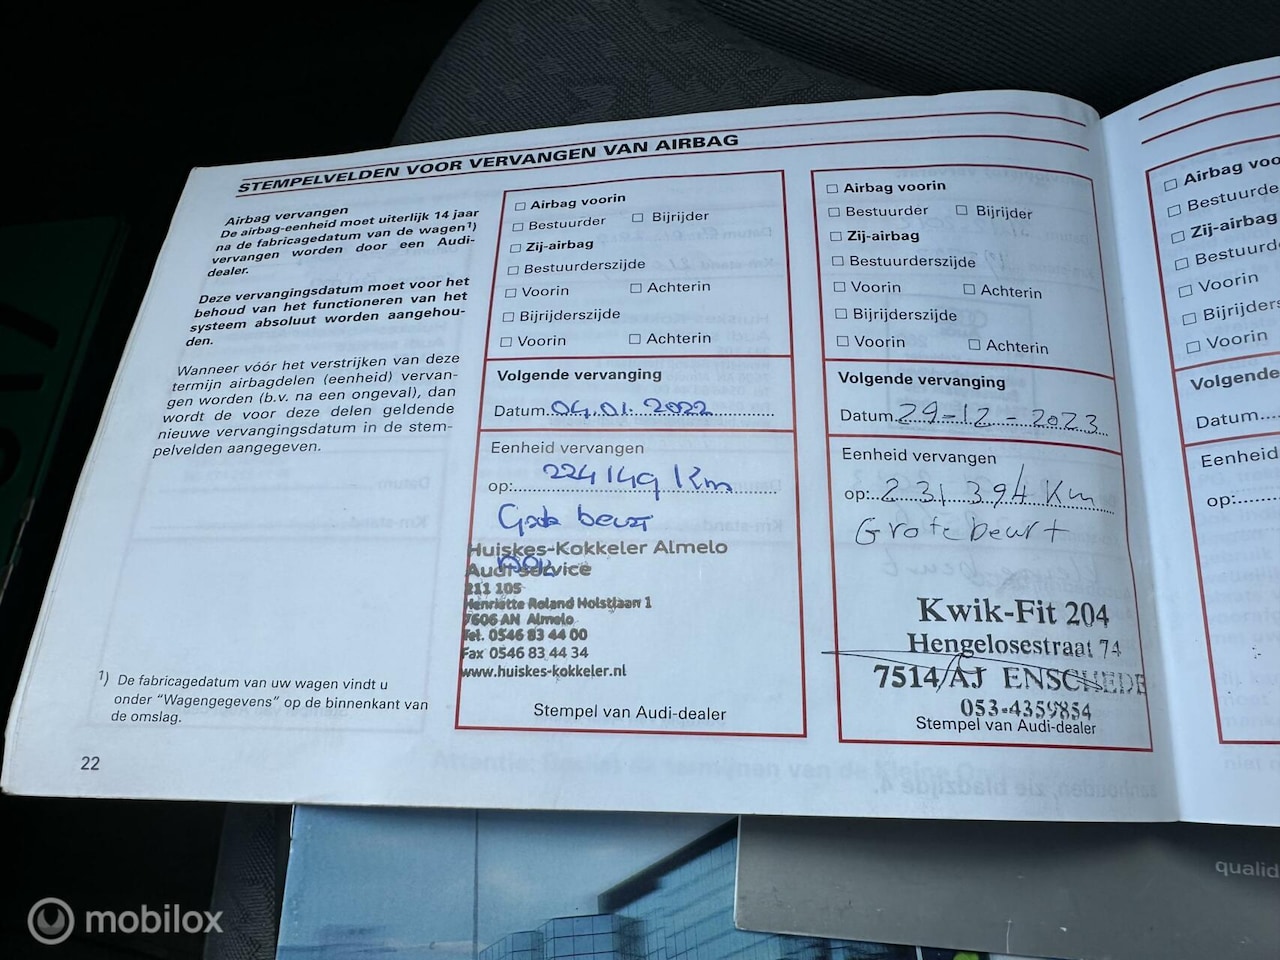 STEMPELVELDEN VOOR VERVANGEN VAN AIRBAG
Airbag vervangen
De airbag-eenheid moet uiterlijk 14 jaar
na de fabricagedatum van de wagen1)
vervangen worden door een Audi-
dealer.
Deze vervangingsdatum moet voor het
behoud van het functioneren van het
systeem absoluut worden aangehou-
den.
Wanneer vóór het verstrijken van deze
termijn airbagdelen (eenheid) vervan-
gen worden (b.v. na een ongeval), dan
wordt de voor deze delen geldende
nieuwe vervangingsdatum in de stem-
pelvelden aangegeven.
1) De fabricagedatum van uw wagen vindt u
onder "Wagengegevens" op de binnenkant van
de omslag.
22
Airbag voorin
Bestuurder Bijrijder
Zij-airbag
Bestuurderszijde
Voorin Achterin
Bijrijderszijde
Voorin Achterin
Volgende vervanging
Datum 04.01.2022
Eenheid vervangen
op: 224149 Km
beurt
Huiskes-Kokkeler Almelo
Audi service
211 105
Henriette Roland Holstlaan 1
7606 AN Almelo
Tel. 0546 83 44 00
Fax 0546 83 44 34
www.huiskes-kokkeler.nl
Stempel van Audi-dealer
Airbag voorin
Bestuurder Bijrijder
Zij-airbag
Bestuurderszijde
Voorin Achterin
Bijrijderszijde
Voorin Achterin
Volgende vervanging
Datum 29-12-2023
Eenheid vervangen
op: 231394 Km
Grote beurt
Kwik-Fit 204
Hengelosestraat 74
7514 AJ ENSCHEDE
053-4359854
Stempel van Audi-dealer
Airbag voo
Bestuurde
Zij-airbag
Bestuurde
Voorin
Bijrijdersz
Voorin
Volgende
Datum
Eenheid
op:
qualid
mobilox